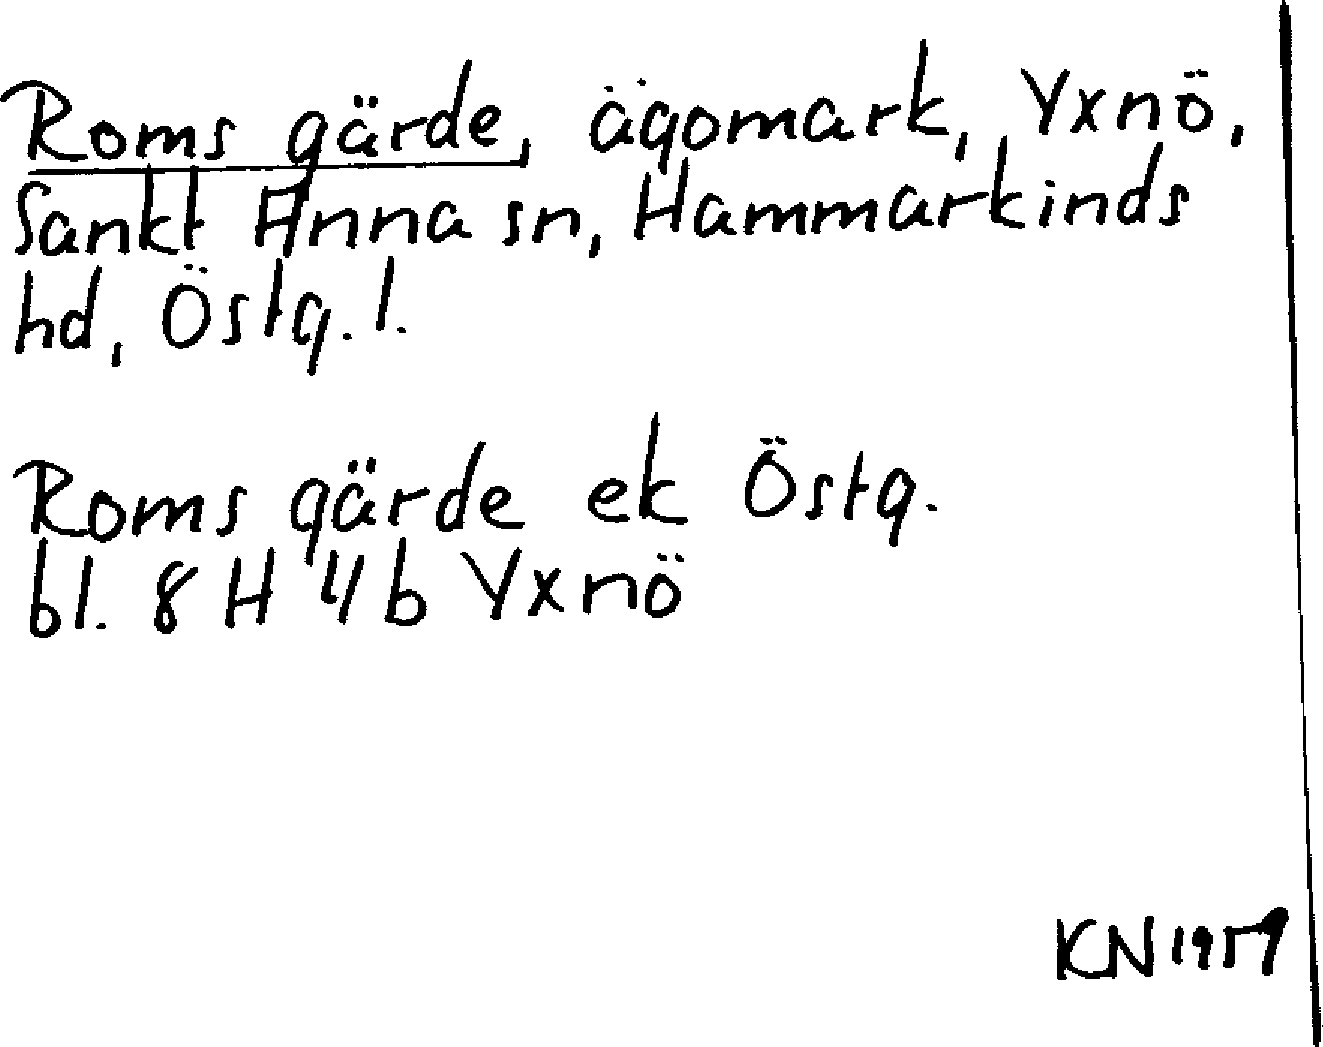 Roms gärde, ägomark, Yxnö,
Sankt Anna sn, Hammarkinds
hd, Östg. l.
Roms gärde ek Östg.
bl. 8 H 4 b Yxnö
KN 1959